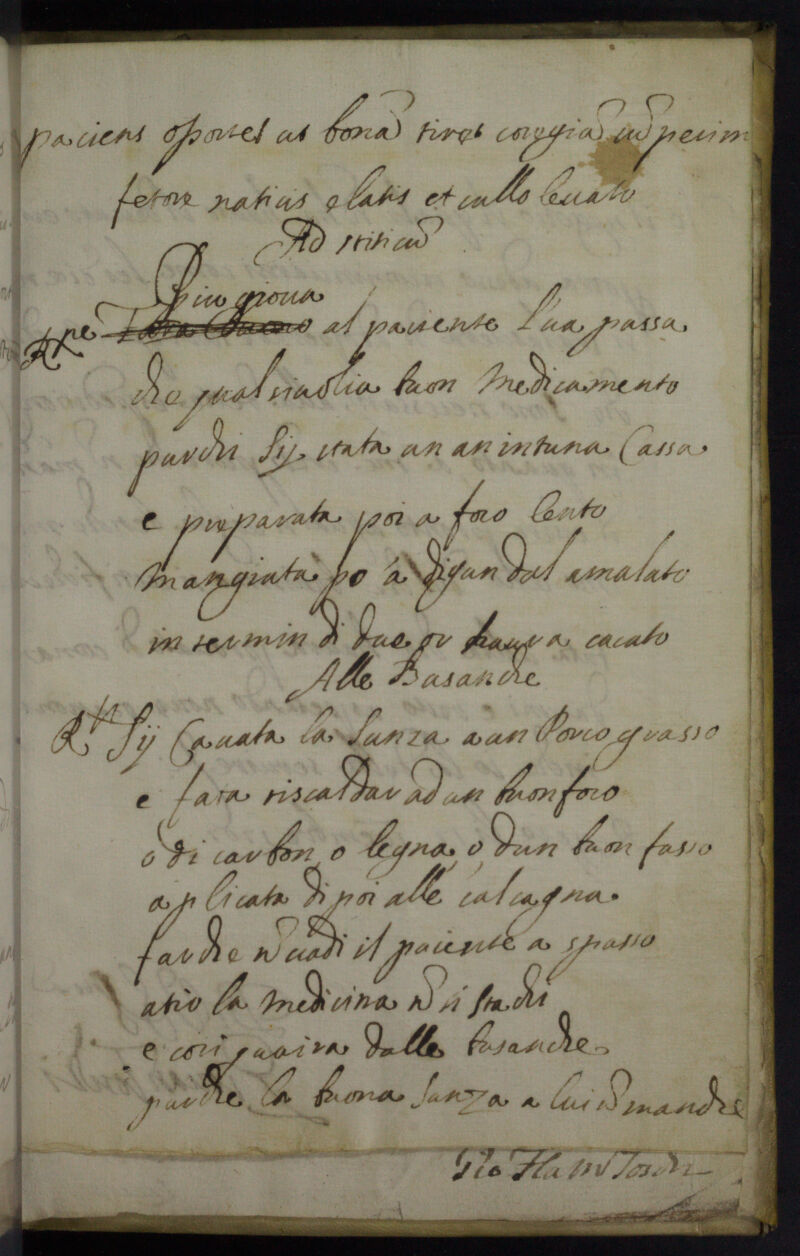 paciens oportet ut bona
fetore natius elatis et cullo levato
Ad stiticu
Piu giova
al paciente l'ua passa
che qual siuolia buon Medicamento
purchi Sij stata un an in tuna Cassa
e preparata poi a foco lento
Mangiata po a digun dal amalato
in termin di due or haura cacato
Alle Busanche
Rn Sij Cavata la Sunza a un Porco grasso
e fata riscaldar ad un buon foco
o di carbon, o legna, o dun buon fasso
aplicata di poi alle calcagna
il paciente a spasso
atio la Medicina
e cosi guarira dalle busanche
purche la buona Sunza a lui manche